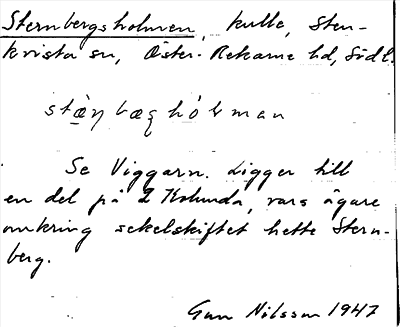 Sternbergsholmen, kulle, Sten-
kvista sn, Öster-Rekarne hd, Södl.
stæ̀ŋbæɡhólman
Se Viggarn. Ligger till
en del på 2 Kolunda, vars ägare
omkring sekelskiftet hette Stern-
berg.
Gun Nilsson 1947